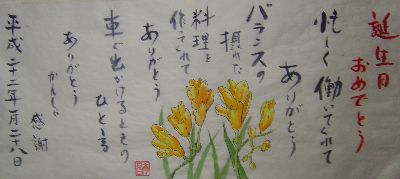 誕生日
おめでとう
忙しく働いてくれて
ありがとう
バランスの
摂れた
料理を
作ってくれて
ありがとう
車で出かけるときの
ひととき
ありがとう
感謝
平成二十二年一月二十八日